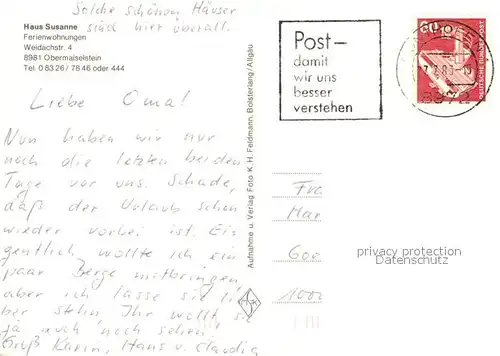 Solche schönen Häuser
sind hier überall.
Haus Susanne
Ferienwohnungen
Weidachstr. 4
8981 Obermaiselstein
Tel. 0 83 26 / 78 46 oder 444
Liebe Oma!
Nun haben wir nur
noch die letzten beiden
Tage vor uns. Schade,
daß der Urlaub schon
wieder vorbei ist. Ei-
gentlich wollte ich ein
paar Berge mitbringen,
aber ich lasse sie lie
ber stehn, Ihr wollt sie
ja auch noch sehen.
Gruß Karin, Hans u. Claudia
Aufnahme u. Verlag Foto K. H. Feldmann, Bolsterlang / Allgäu
Post –
damit
wir uns
besser
verstehen
60
DEUTSCHE BUNDESPOST
8972
Fra
Mar
Goe
1000
privacy protection
Datenschutz